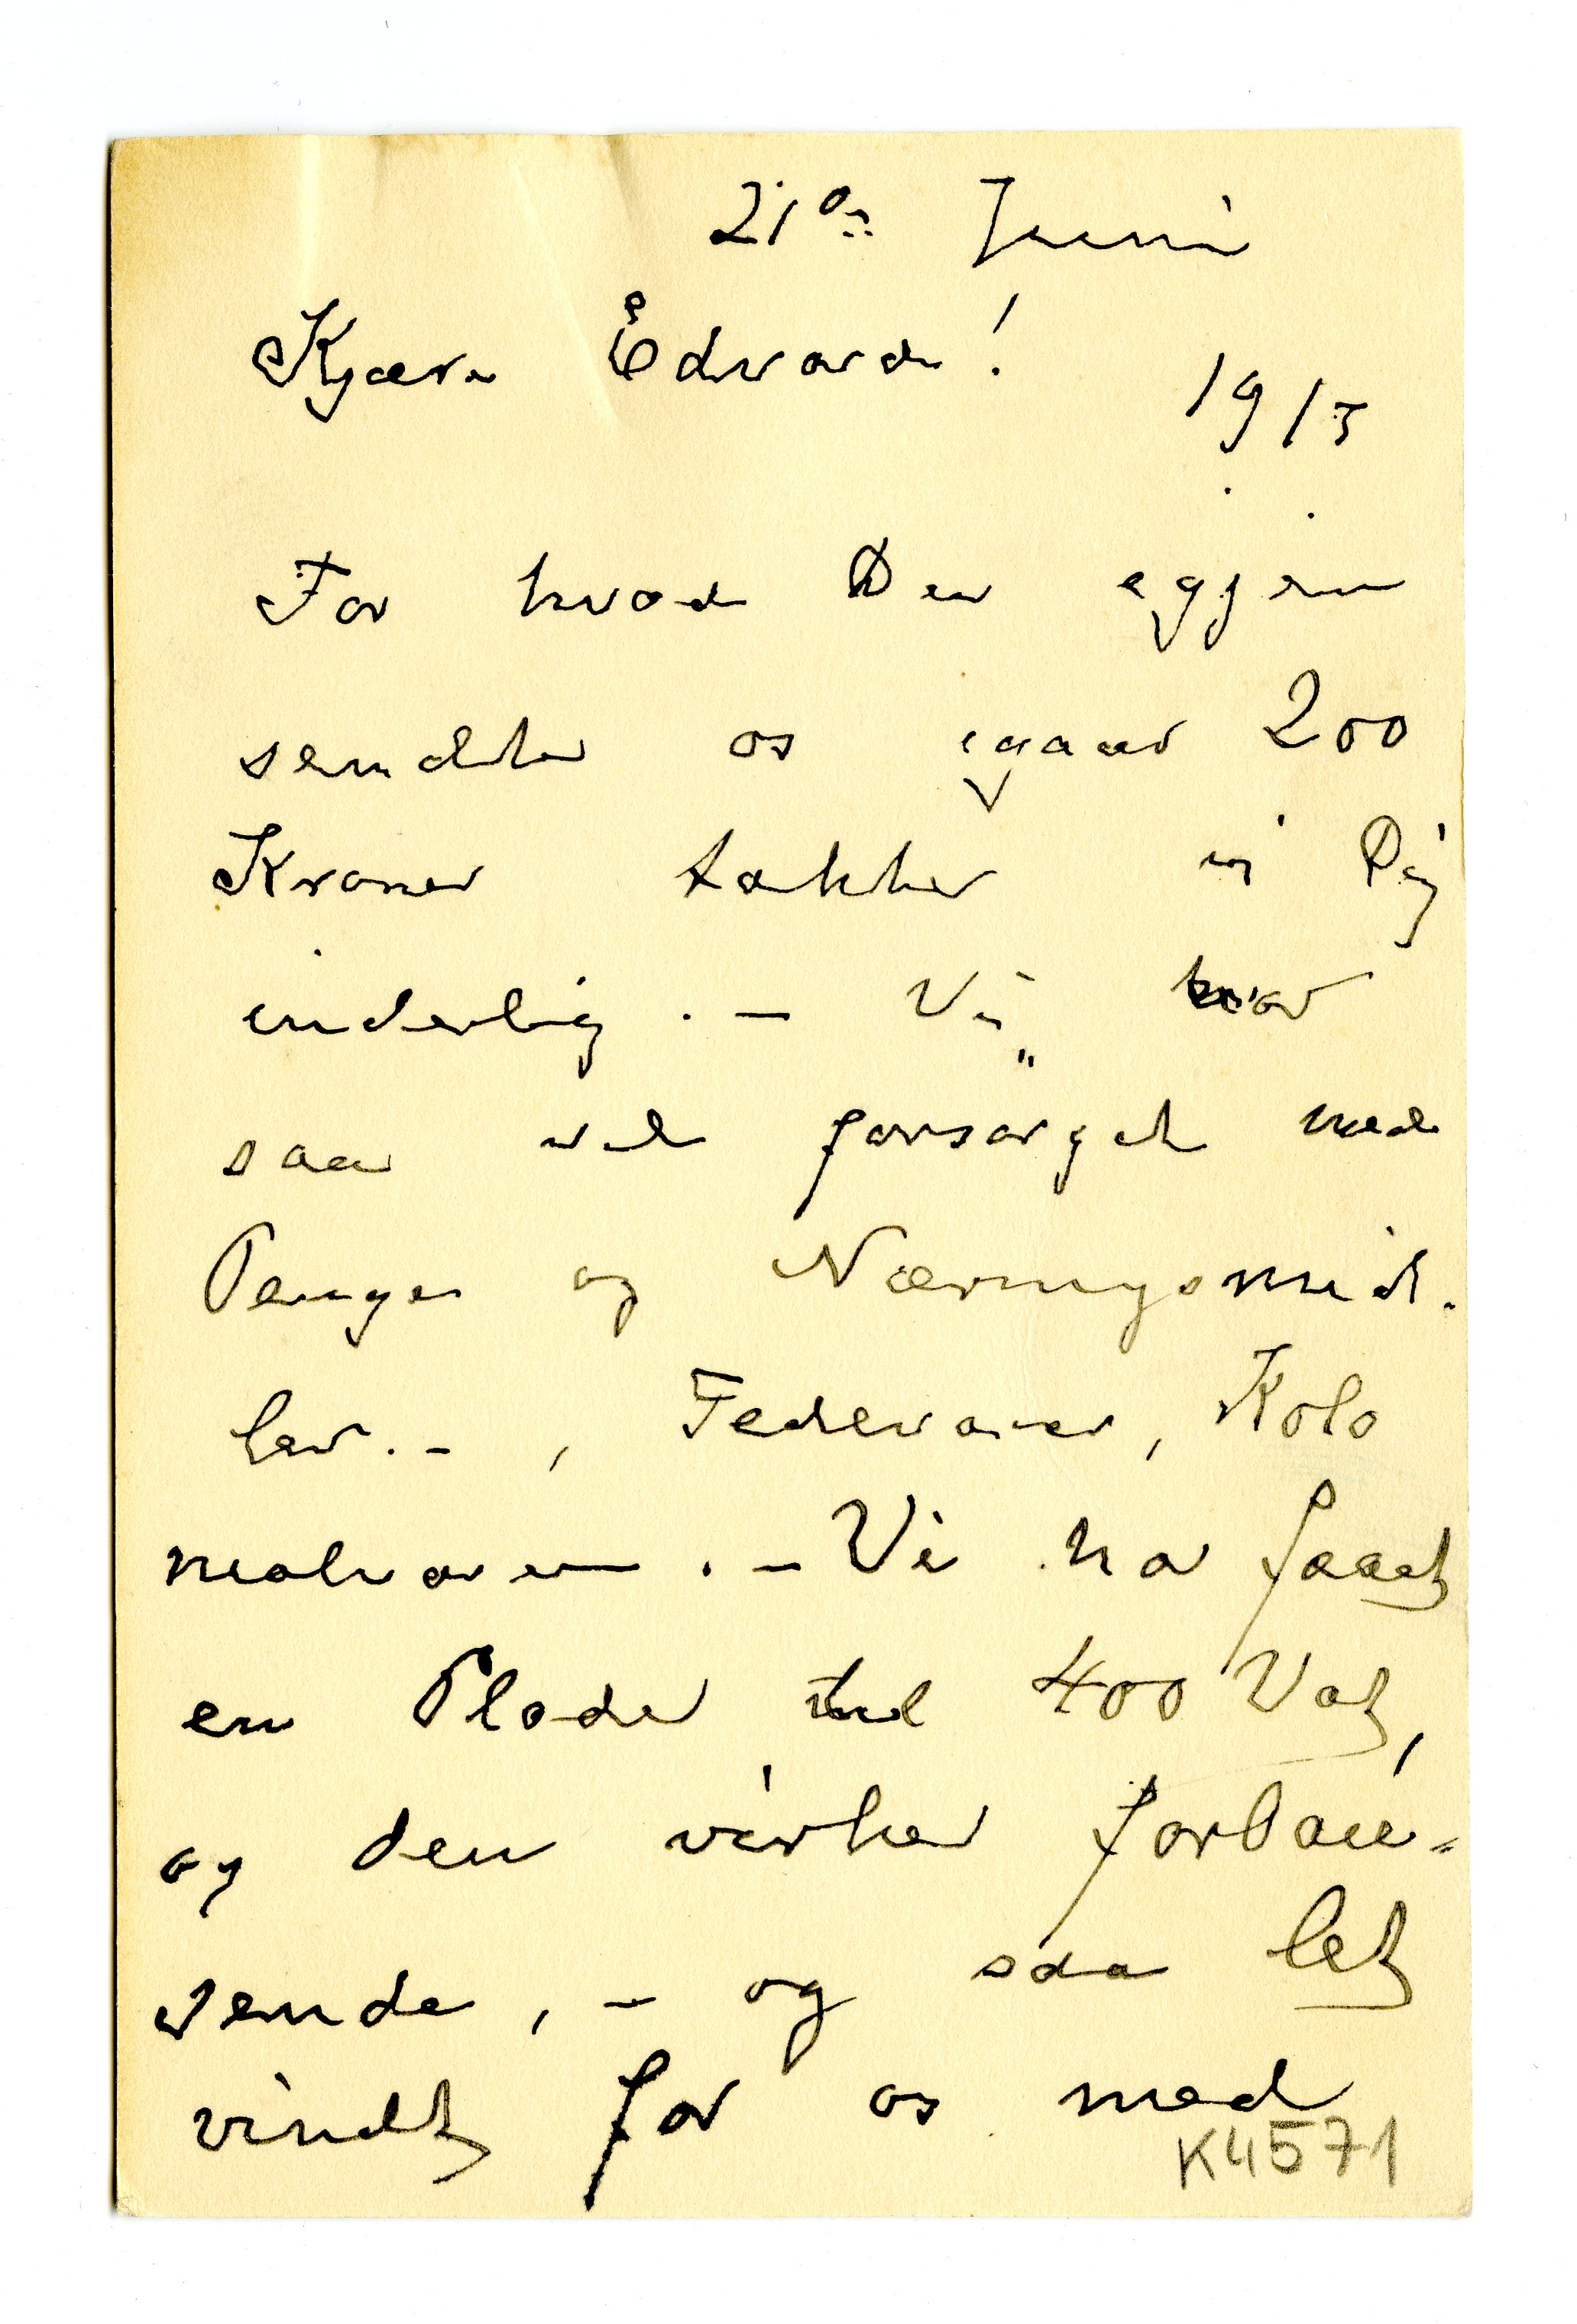 21de Juni
Kjære Edvard!
1915
For hvad Du igjen
sendte os igaar 200
Kroner takker vi Dig
inderlig. – Vi har
saa vel forsørget med
Penge og Næringsmid-
ler. – , Fedevarer, Kolo
nialvarer. – Vi ha faaet
en Plade til 400 Vat,
og den virker forbau-
sende, – og saa let
vindt for os med
K4571